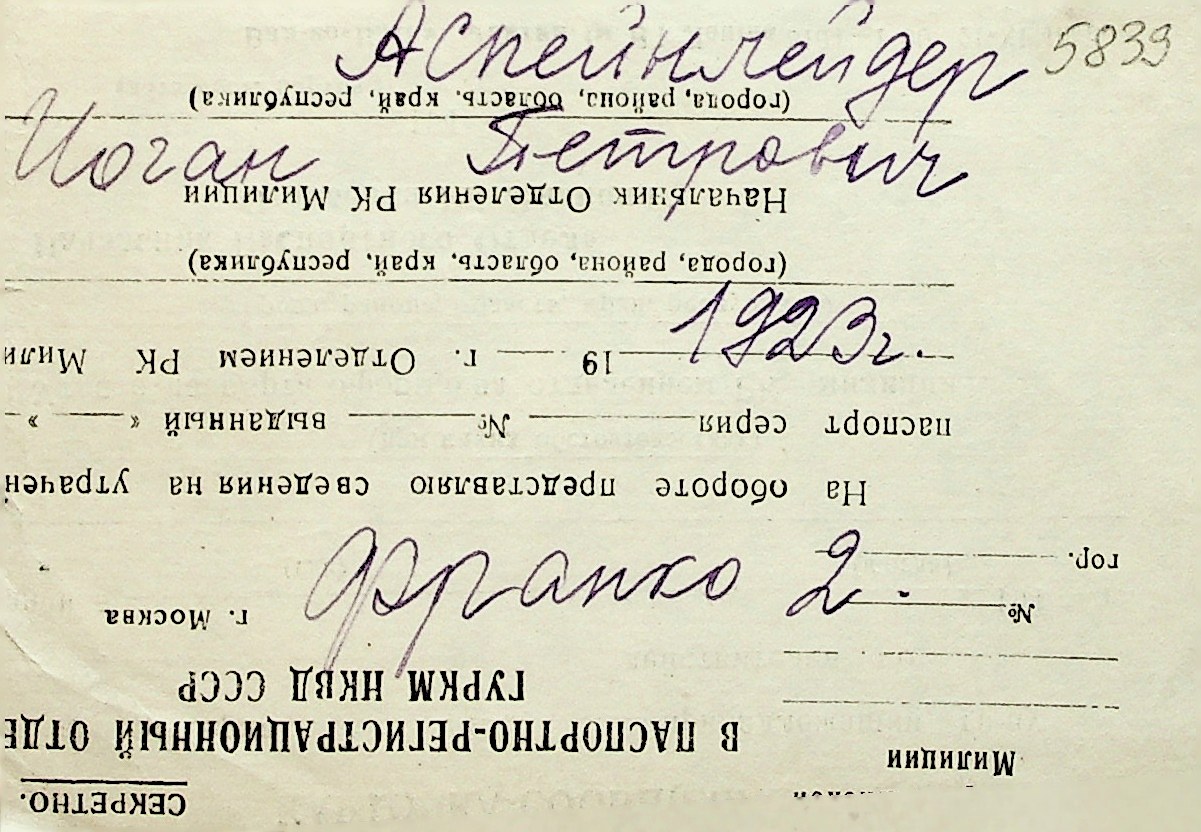 Аспейнлейдер 5839
Иоган Петрович
1923г.
Франко 2.
СЕКРЕТНО.
Милиции
В ПАСПОРТНО-РЕГИСТРАЦИОННЫЙ ОТДЕ
ГУРКМ НКВД СССР
№ г. Москва
гор.
На обороте представляю сведения на утрачен
паспорт серия № выданный « »
19 г. Отделением РК Мили
(города, района, область, край, республика)
Начальник Отделения РК Милиции
(города, района, область, край, республика)